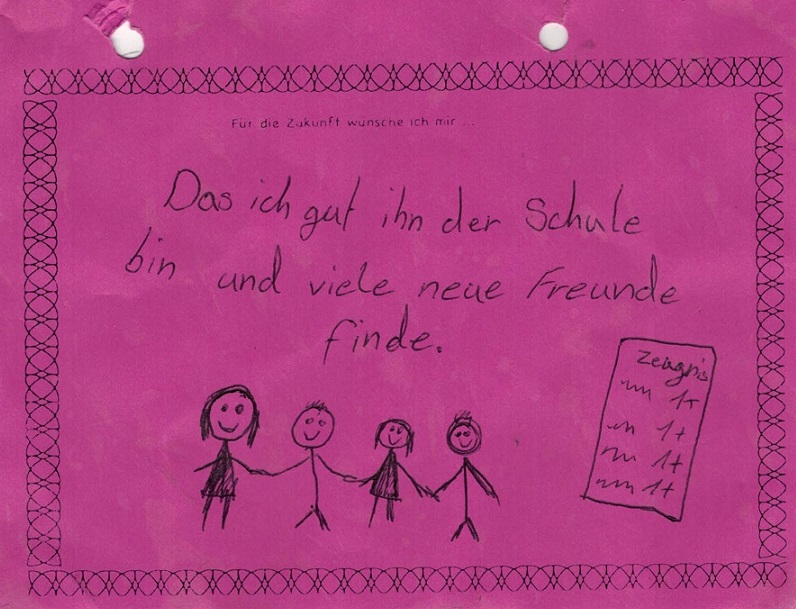 Für die Zukunft wünsche ich mir ...
Das ich gut ihn der Schule
bin und viele neue Freunde
finde.
Zeugnis
1+
1+
1+
1+